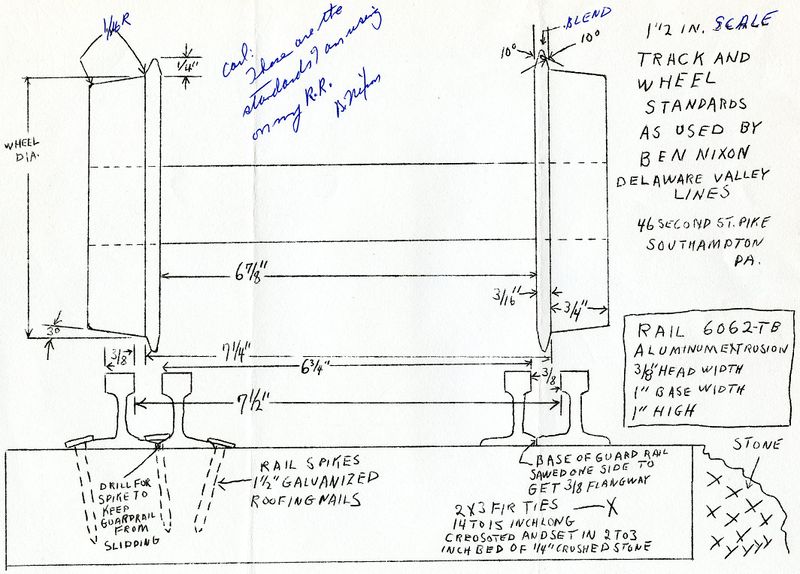 1/16 R
1/4"
Carl:
These are the
standards I am using
on my R.R.
B. Nixon
BLEND
10°
10°
1 1/2 IN. SCALE
TRACK AND
WHEEL
STANDARDS
AS USED BY
BEN NIXON
DELAWARE VALLEY
LINES
46 SECOND ST. PIKE
SOUTHAMPTON
PA.
WHEEL
DIA.
6 7/8"
3/16"
3/4"
3°
3/8
7 1/4"
6 3/4"
3/8
7 1/2"
RAIL 6062-TB
ALUMINUM EXTRUSION
3/8" HEAD WIDTH
1" BASE WIDTH
1" HIGH
STONE
DRILL FOR
SPIKE TO
KEEP
GUARDRAIL
FROM
SLIDDING
RAIL SPIKES
1 1/2" GALVANIZED
ROOFING NAILS
BASE OF GUARD RAIL
SAWED ONE SIDE TO
GET 3/8 FLANGWAY
2 X 3 FIR TIES X
14 TO 15 INCH LONG
CREOSOTED AND SET IN 2 TO 3
INCH BED OF 1/4" CRUSHED STONE